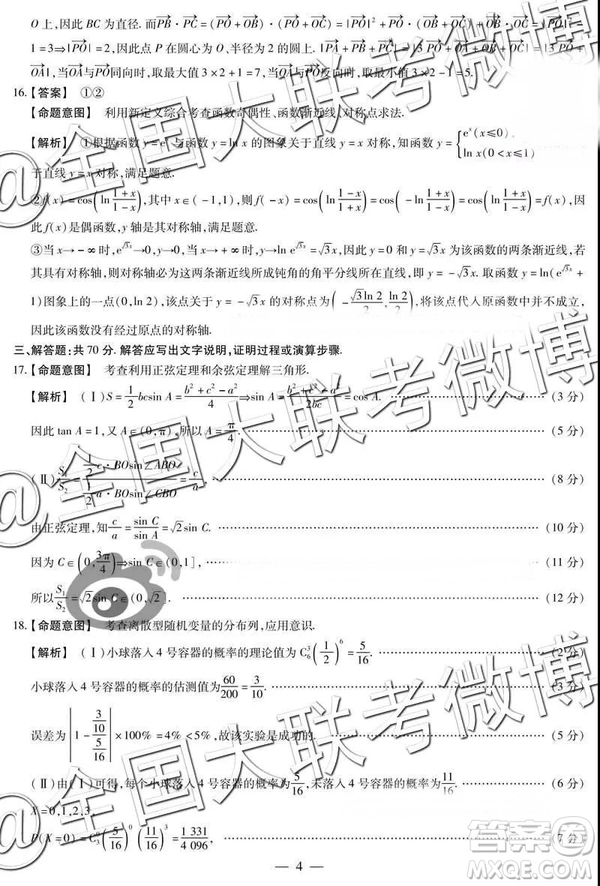 O 上,因此 BC 为直径. 而PB·PC=(PO+OB)·(PO+OC)=(PO+OB)·(PO-OB)=|PO|²-|OB|²=|PO|²-
1=3⇒|PO|=2,因此点 P 在圆心为 O,半径为 2 的圆上. |PA+PB+PC|=|PO+OA+2PO|=|3PO+
OA|,当OA与PO同向时,取最大值 3×2+1=7,当OA与PO反向时,取最小值 3×2-1=5.
16.【答案】 ①②
【命题意图】 利用新定义综合考查函数奇偶性、函数渐近线、对称点求法.
【解析】 ①根据函数 y=eˣ与函数 y=ln x 的图象关于直线 y=x 对称,知函数 y={eˣ(x≤0), ln x(0<x≤1)
于直线 y=x 对称,满足题意.
②f(x)=cos(ln (1+x)/(1-x)),其中 x∈(-1,1),则 f(-x)=cos(ln (1-x)/(1+x))=cos(-ln (1+x)/(1-x))=cos(ln (1+x)/(1-x))=f(x),因
此 f(x)是偶函数,y 轴是其对称轴,满足题意.
③当 x→-∞时,e^(√3x)→0,y→0,当 x→+∞时,y→ln e^(√3x)=√3x,因此 y=0 和 y=√3x 为该函数的两条渐近线,若
其函数具有对称轴,则对称轴必为这两条渐近线所成钝角的角平分线所在直线,即 y=-√3x. 取函数 y=ln(e^(√3x)+
1)图象上的一点(0,ln 2),该点关于 y=-√3x 的对称点为(-√3ln 2/2, -ln 2/2),将该点代入原函数中并不成立,
因此该函数没有经过原点的对称轴.
三、解答题:共 70 分. 解答应写出文字说明,证明过程或演算步骤.
17.【命题意图】 考查利用正弦定理和余弦定理解三角形.
【解析】 (Ⅰ)S=1/2 bcsin A=(b²+c²-a²)/4⇒sin A=(b²+c²-a²)/2bc=cos A. (3 分)
因此 tan A=1,又 A∈(0,π),所以 A=π/4. (5 分)
(Ⅱ)S₁/S₂=(1/2 c·BOsin∠ABO)/(1/2 a·BOsin∠CBO)=c/a, (8 分)
由正弦定理,知 c/a=sin C/sin A=√2sin C. (10 分)
因为 C∈(0,3π/4)⇒sin C∈(0,1], (11 分)
所以 S₁/S₂=√2sin C∈(0,√2]. (12 分)
18.【命题意图】 考查离散型随机变量的分布列,应用意识.
【解析】 (Ⅰ)小球落入 4 号容器的概率的理论值为 C₆³(1/2)⁶=5/16. (2 分)
小球落入 4 号容器的概率的估测值为 60/200=3/10. (3 分)
误差为|1-(3/10)/(5/16)|×100%=4%<5%,故该实验是成功的. (5 分)
(Ⅱ)由(Ⅰ)可得,每个小球落入 4 号容器的概率为5/16,未落入 4 号容器的概率为11/16. (6 分)
X=0,1,2,3,
P(X=0)=C₃⁰(5/16)⁰(11/16)³=1 331/4 096, (7 分)
— 4 —
@全国大联考微博
@全国大联考微博
@全国大联考微博
答案圈